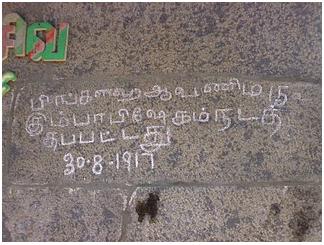 சிவ
பிங்கள௵ ஆவணி௴
கும்பாபிஷேகம் நடத்
தப்பட்டது
30-8-1917